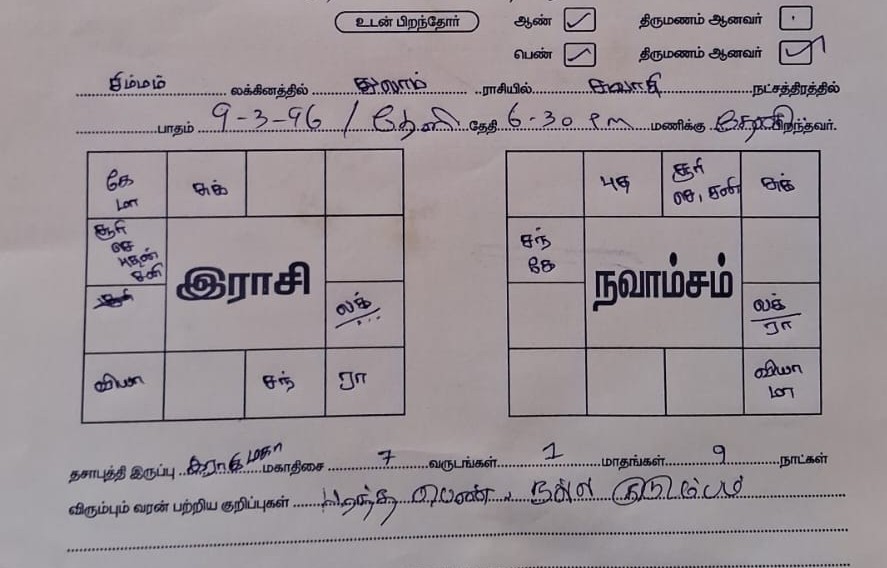 உடன் பிறந்தோர் ஆண் ✓ திருமணம் ஆனவர் .
பெண் ✓ திருமணம் ஆனவர் ✓
சிம்மம் லக்கினத்தில் துலாம் ராசியில் சுவாதி நட்சத்திரத்தில்
பாதம் 9-3-96 / தேனி தேதி 6-30 PM மணிக்கு பிறந்தவர்.
கே மா சுக் புத சூரி செ, சனி சுக்
சூரி செ புதன் சனி சந் கே
இராசி நவாம்சம்
லக் லக் ரா
வியா சந் ரா வியா மா
தசாபுத்தி இருப்பு ராகு மகா மகாதிசை 7 வருடங்கள் 1 மாதங்கள் 9 நாட்கள்
விரும்பும் வரன் பற்றிய குறிப்புகள் பெண், நல்ல குடும்பம்